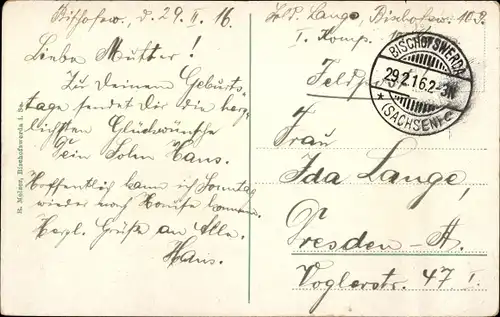 Bischofsw. d. 29. II. 16
Liebe Mutter!
Zu Deinem Geburts-
tage sendet Dir die herz-
lichsten Glückwünsche
Dein Sohn Hans.
Hoffentlich kann ich Sonntag
wieder nach Hause kommen.
Herzl. Grüße an Alle.
Hans.
R. Meizer, Bischofswerda i. Sa.
Feld. Lange, Bischofsw. 103
I. Komp.
BISCHOFSWERDA
29.2.16.2-3N
* (SACHSEN)
Frau
Ida Lange,
Dresden-A.
Voglerstr. 47 I.